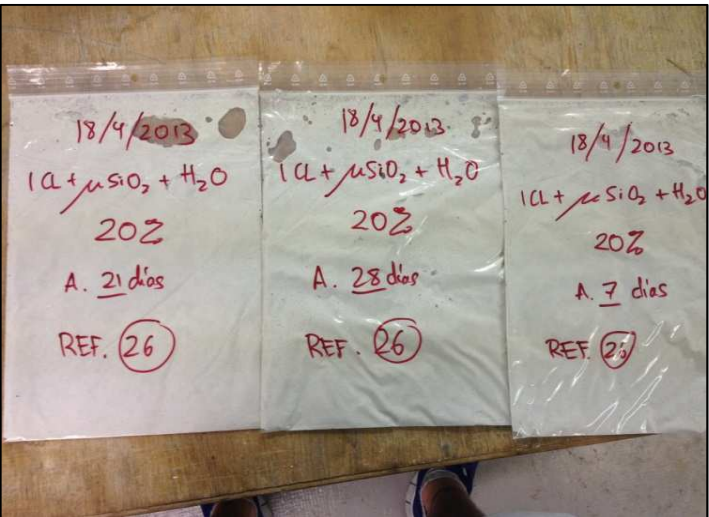 18/4/2013
1CL + μSiO₂ + H₂O
20%
A. 21 días
REF. 26
18/4/2013
1CL + μSiO₂ + H₂O
20%
A. 28 días
REF. 26
18/4/2013
1CL + μSiO₂ + H₂O
20%
A. 7 días
REF. 26